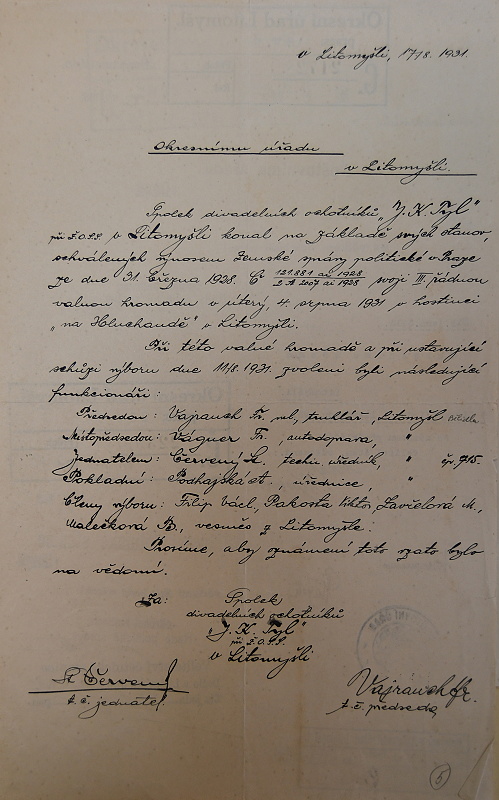 v Litomyšli, 17/8. 1931.
Okresnímu úřadu
v Litomyšli.
Spolek divadelních ochotníků „J. K. Tyl"
při v Litomyšli konal na základě svých stanov,
schválených výnosem zemské správy politické v Praze
ze dne 31. března 1928. Č 121.881 ai 1928
2 A 2007 ai 1928 svoji III. řádnou
valnou hromadu v úterý, 4. srpna 1931 v hostinci
„na Hluchandě" v Litomyšli.
Při této valné hromadě a při ustavující
schůzi výboru dne 11/8. 1931. zvoleni byli následující
funkcionáři:
Předsedou: Vajrauch Fr. ml, truhlář, Litomyšl
Místopředsedou: Vágner Fr., autodoprava, "
Jednatelem: Červený St. techn. úředník, " čp. 915.
Pokladní: Podhajská A., úřednice, "
Členy výboru: Filip Václ, Pakosta Viktor, Zavčelová M.,
Malečková B., vesměs z Litomyšle.
Prosíme, aby oznámení toto vzato bylo
na vědomí.
Za: Spolek
divadelních ochotníků
„J. K. Tyl"
při
v Litomyšli
St. Červený
t. č. jednatel.
Vajrauch Fr.
t. č. předseda
5